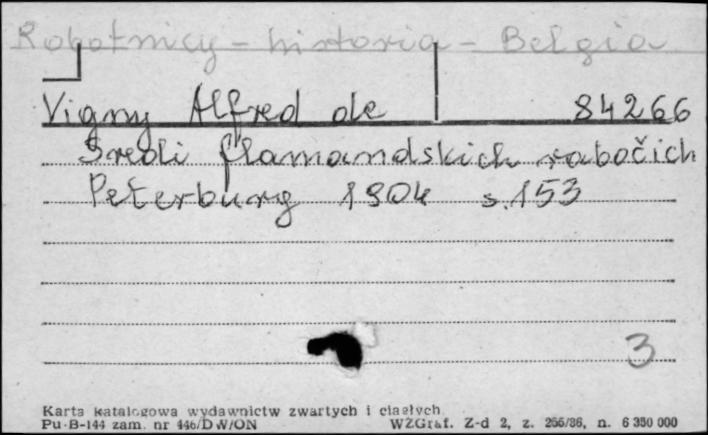 Robotnicy - historia - Belgia
Vigny Alfred de 84266
Sredi flamandskich rabočich
Peterburg 1904 s.153
3
Karta katalogowa wydawnictw zwartych i ciągłych
Pu-B-144 zam. nr 446/DW/ON WZGraf. Z-d 2, z. 266/86, n. 6 350 000